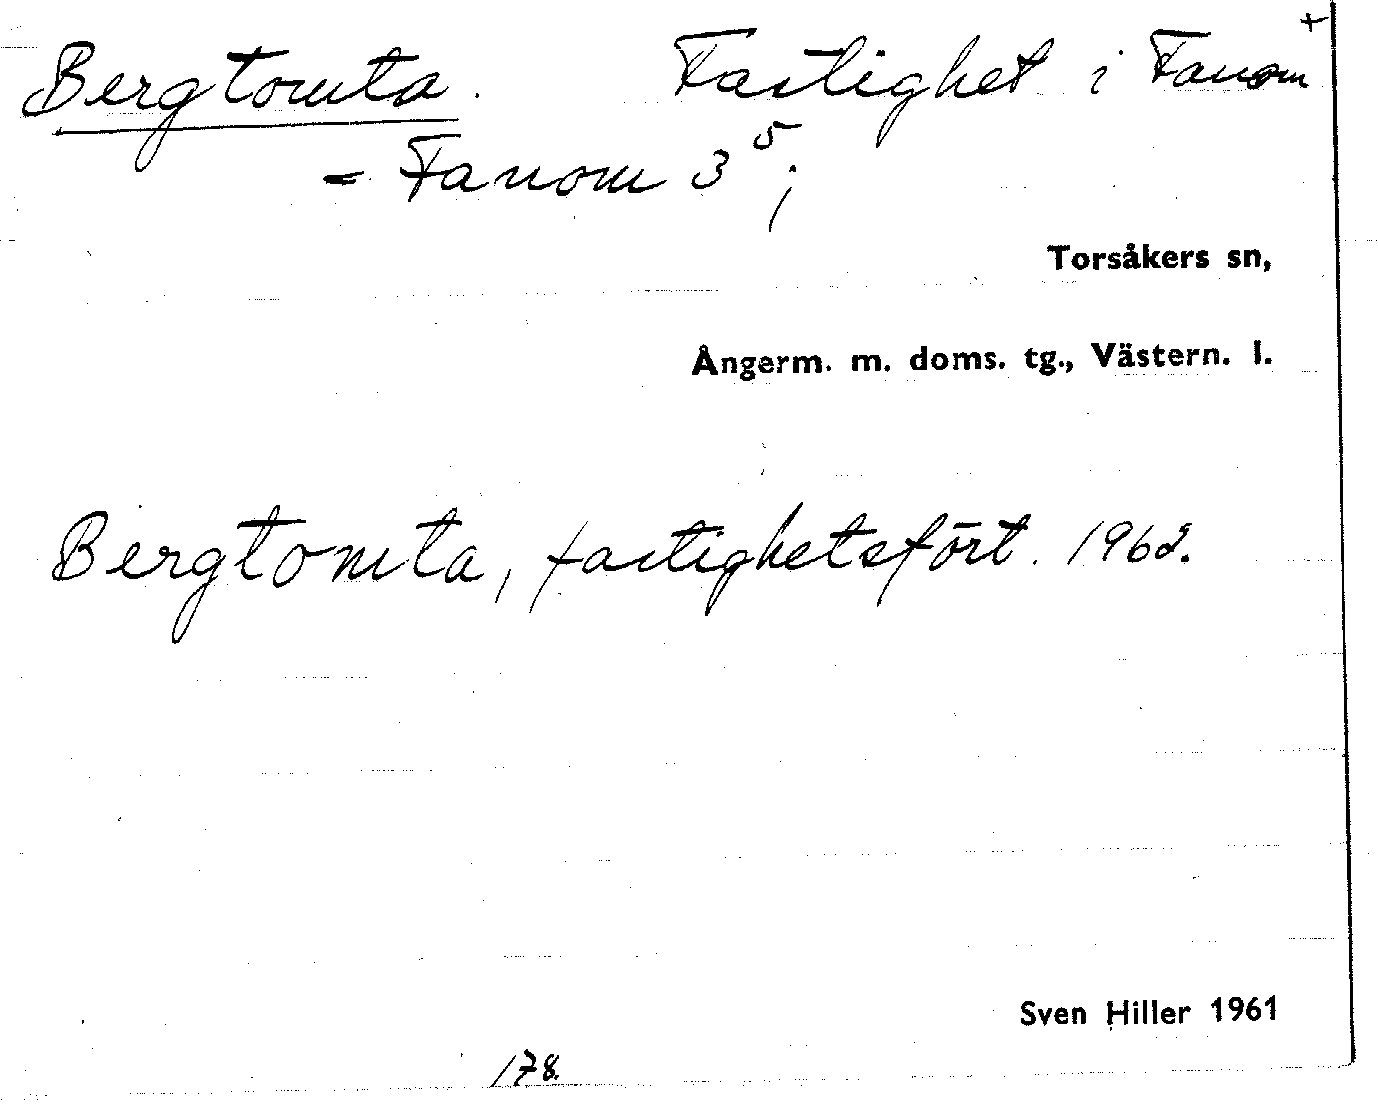 Bergtomta. Fastighet i Fanom +
= Fanom 3⁵;
Torsåkers sn,
Ångerm. m. doms. tg., Västern. l.
Bergtomta, fastighetsfört. 1962.
Sven Hiller 1961
178.